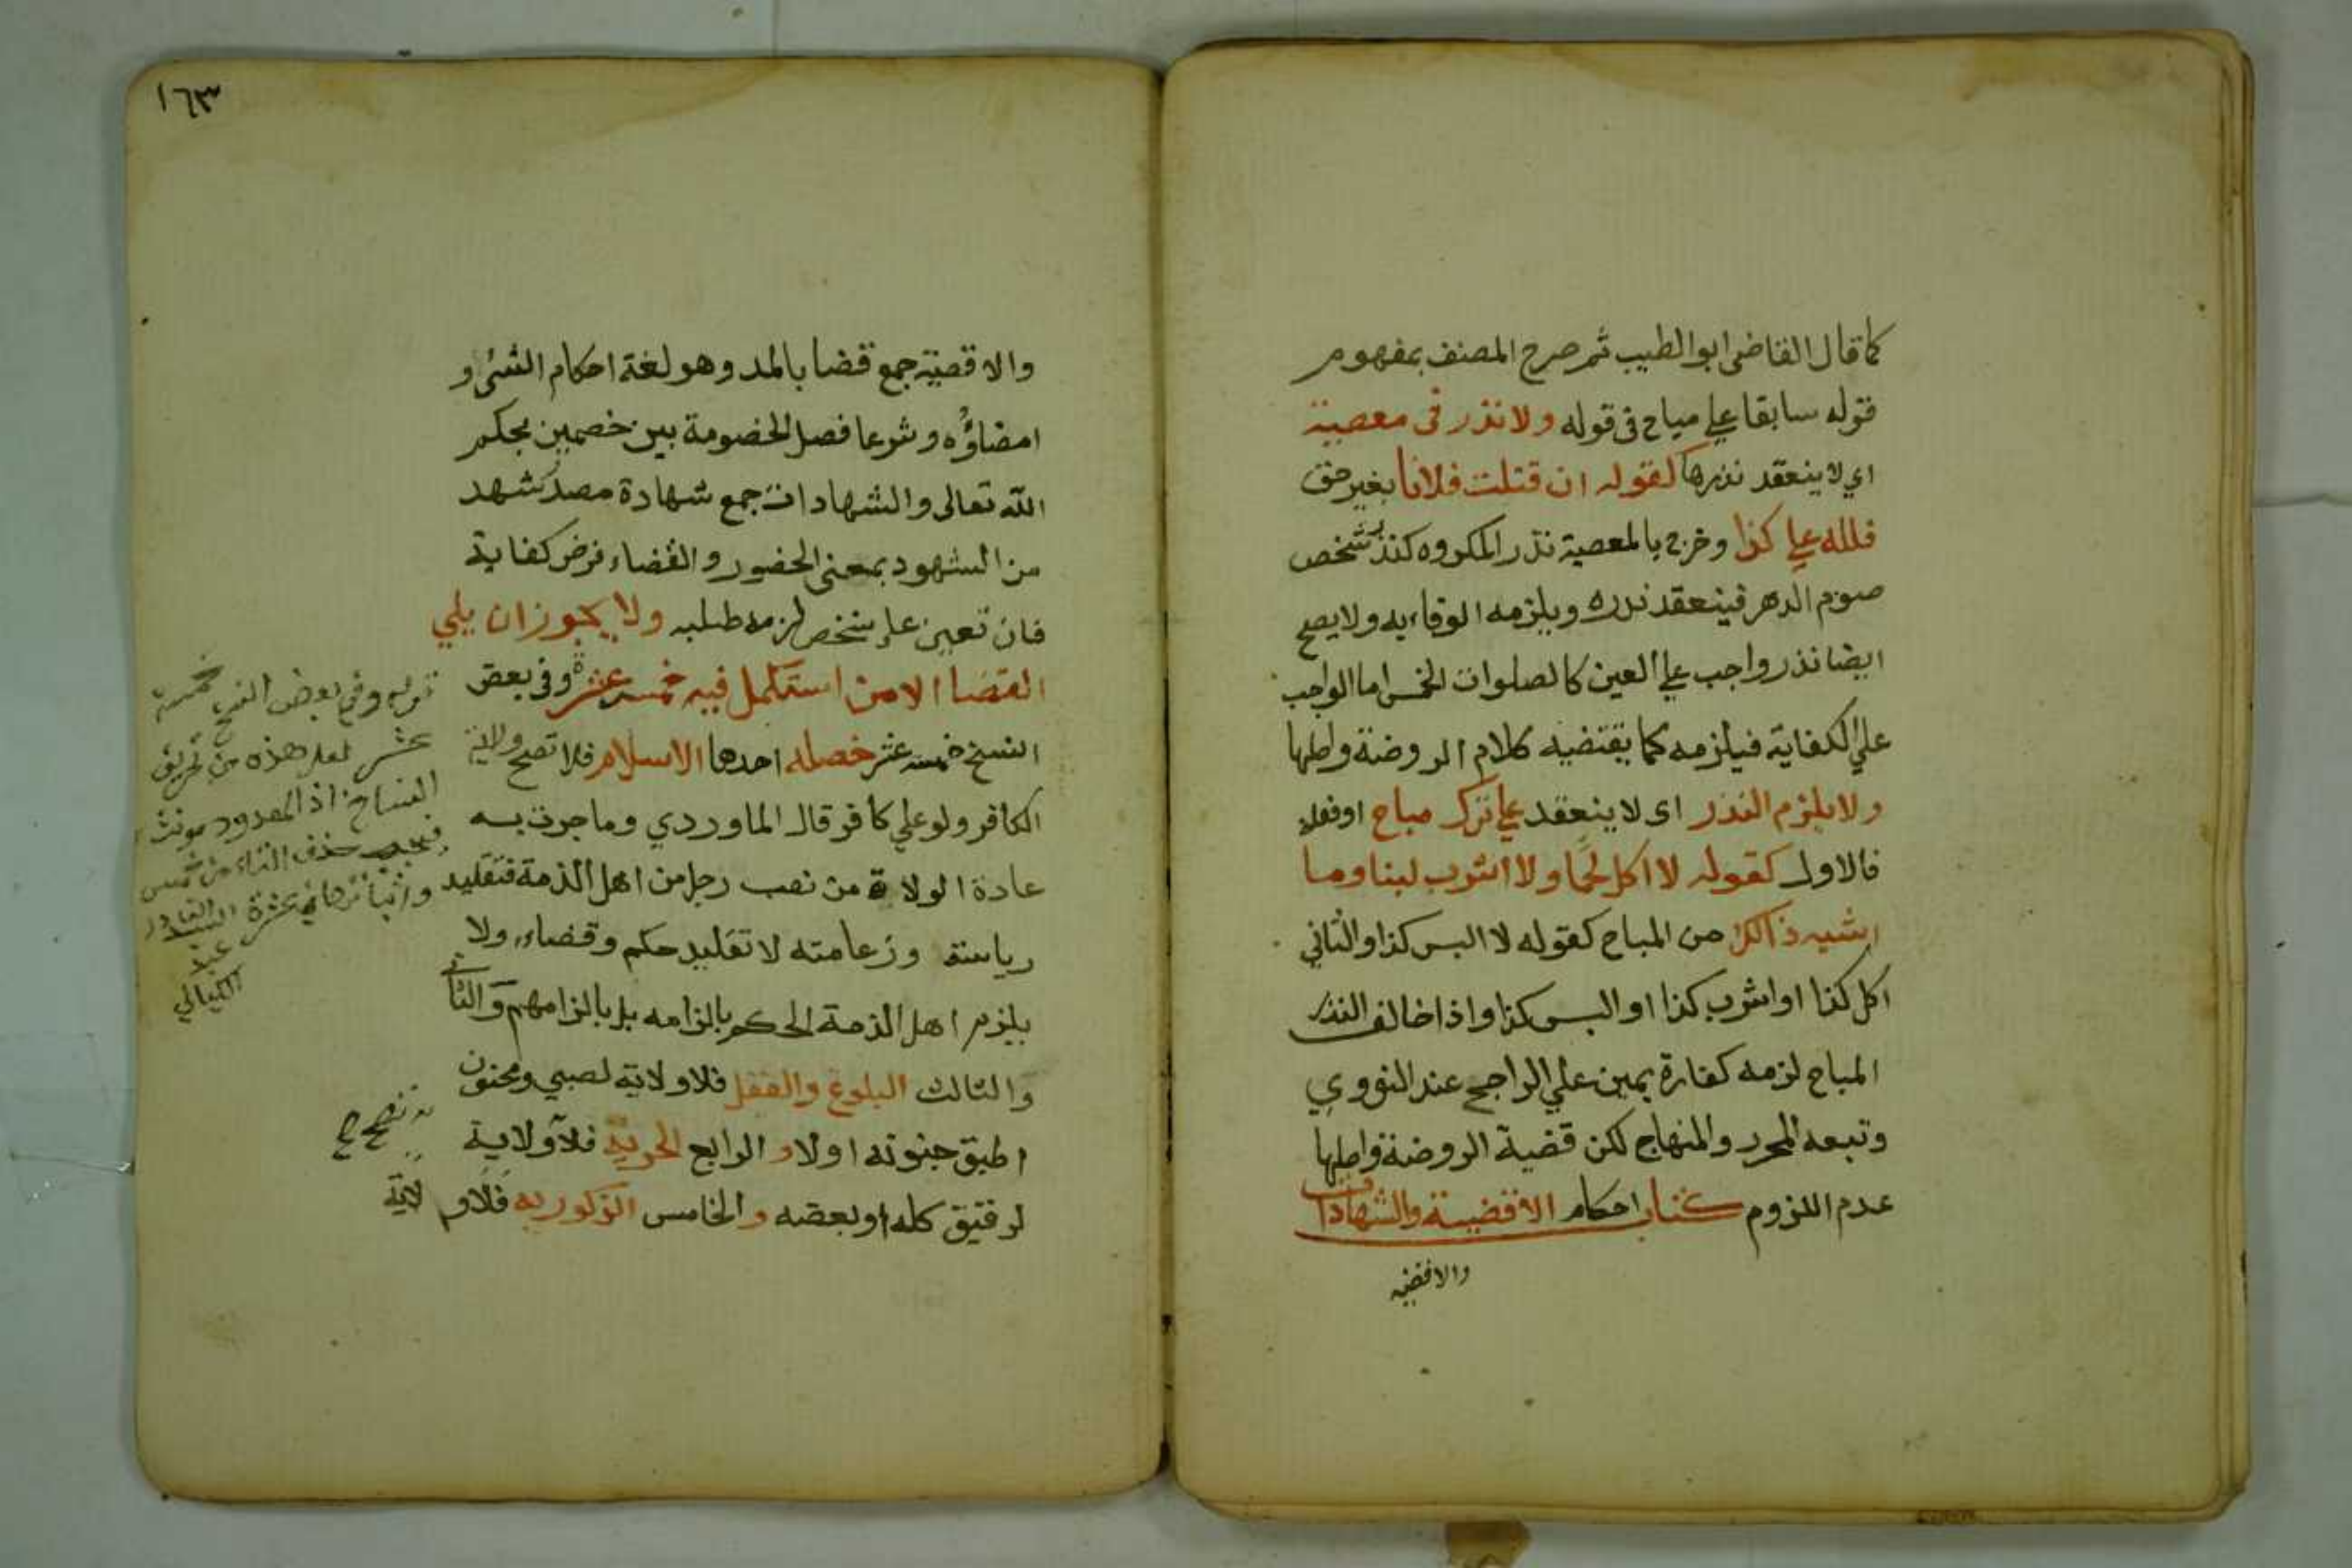 كما قال القاضى ابو الطيب ثم صرح المصنف بمفهوم
قوله سابقا علي مباح فى قوله ولا نذر فى معصية
اي لا ينعقد نذرها كقوله ان قتلت فلانا بغير حق
فلله علي كذا وخرج بالمعصية نذر المكروه كنذر شخص
صوم الدهر فينعقد نذره ويلزمه الوفاء به ولا يصح
ايضا نذر واجب علي العين كالصلوات الخمس اما الواجب
علي الكفاية فيلزمه كما يقتضيه كلام الروضة واصلها
ولا يلزم النذر اى لا ينعقد علي ترك مباح او فعله
فالاول كقوله لا اكل لحما ولا اشرب لبنا وما
اشبه ذالك من المباح كقوله لا البس كذا والثاني
اكل كذا او اشرب كذا او البس كذا واذا خالف النذر
المباح لزمه كفارة يمين علي الراجح عند النووي
وتبعه المحرر والمنهاج لكن قضية الروضة واصلها
عدم اللزوم كتاب احكام الاقضية والشهادات
والاقضيه
١٦٣
والاقضية جمع قضا بالمد وهو لغة احكام الشئ او
امضاؤه وشرعا فصل الخضومة بين خصمين بحكم
الله تعالى والشهادات جمع شهادة مصدر شهد
من الشهود بمعنى الحضور والقضاء فرض كفاية
فان تعين على شخص لزمه طلبه ولا يجوز ان يلي
القضا الا من استكمل فيه خمسة عشر وفى بعض
النسخ خمس عشر خصله احدها الاسلام فلا تصح ولاية
الكافر ولو علي كافر قال الماوردي وما جرت به
عادة الولاة من نصب رجل من اهل الذمة فتقليد
رياسة وزعامته لا تقليد حكم وقضاء ولا
يلزم اهل الذمة الحكم بالزامه بل بالزامهم والثانى
والثالث البلوغ والعقل فلا ولاية لصبي ومجنون
اطبق جنونه اولا والرابع الحرية فلا ولاية
لرقيق كله او بعضه والخامس الذكوريه فلا ولاية
قوله وفي بعض النسخ خمسة
عشر لعل هذه من تحريف
النساخ اذ المعدود مونث
فيجب حذف التاء من خمس
واثباتها في عشرة السيد
عبد القادر
الكيالي